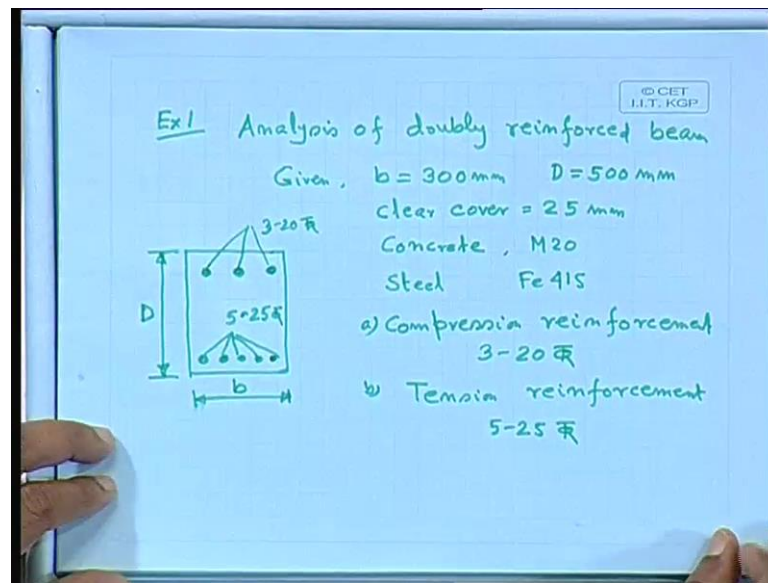 © CET
I.I.T. KGP
Ex 1 Analysis of doubly reinforced beam
Given, b = 300 mm D = 500 mm
clear cover = 25 mm
3-20 ॸ
Concrete, M20
Steel Fe 415
D
5-25
a) Compression reinforcemet
3-20
b) Tension reinforcement
b
5-25